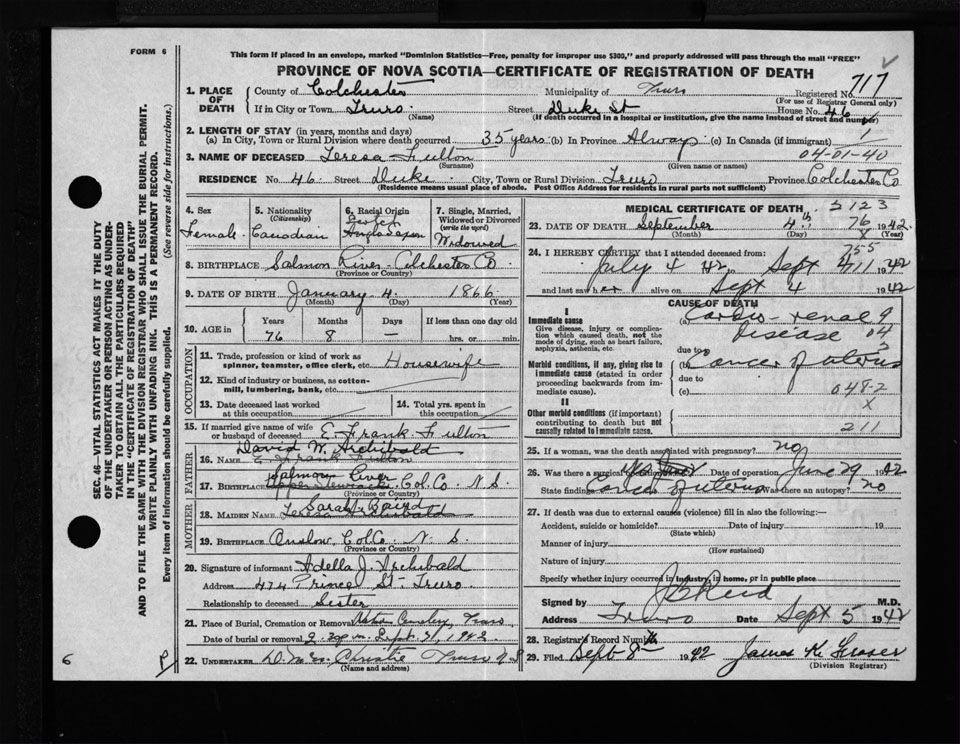 FORM 6
This form if placed in an envelope, marked "Dominion Statistics—Free, penalty for improper use $300," and properly addressed will pass through the mail "FREE"
PROVINCE OF NOVA SCOTIA—CERTIFICATE OF REGISTRATION OF DEATH
1. PLACE OF DEATH County of Colchester Municipality of Truro Registered No. 717
(For use of Registrar General only)
If in City or Town Truro Street Duke St House No. 46
(Name) (If death occurred in a hospital or institution, give the name instead of street and number)
2. LENGTH OF STAY (in years, months and days)
(a) In City, Town or Rural Division where death occurred 35 years (b) In Province Always (c) In Canada (if immigrant)
04-01-40
3. NAME OF DECEASED Teresa Fulton
(Surname) (Given name or names)
RESIDENCE No. 46 Street Duke City, Town or Rural Division Truro Province Colchester Co
(Residence means usual place of abode. Post Office Address for residents in rural parts not sufficient)
4. Sex Female
5. Nationality (Citizenship) Canadian
6. Racial Origin Scotch Anglo Saxon
7. Single, Married, Widowed or Divorced (write the word) Widowed
8. BIRTHPLACE Salmon River Colchester Co
(Province or Country)
9. DATE OF BIRTH January 4 1866
(Month) (Day) (Year)
10. AGE in Years Months Days If less than one day old
76 8 — hrs. or min.
OCCUPATION
11. Trade, profession or kind of work as spinner, teamster, office clerk, etc. Housewife
12. Kind of industry or business, as cotton-mill, lumbering, bank, etc.
13. Date deceased last worked at this occupation
14. Total yrs. spent in this occupation
15. If married give name of wife or husband of deceased E. Frank Fulton
FATHER
David W. Archibald
16. NAME E. Frank Fulton
Salmon River
17. BIRTHPLACE Upper Stewiacke Col. Co. N. S
(Province or Country)
MOTHER
Sarah Baird
18. MAIDEN NAME Teresa Archibald
19. BIRTHPLACE Onslow Col Co. N. S
(Province or Country)
20. Signature of informant Adella J. Archibald
Address 474 Prince St Truro
Relationship to deceased Sister
21. Place of Burial, Cremation or Removal Truro
Date of burial or removal Sept
22. UNDERTAKER Christie Truro N S
(Name and address)
MEDICAL CERTIFICATE OF DEATH
5123
23. DATE OF DEATH September 4th 1942
76
X
(Month) (Day) (Year)
24. I HEREBY CERTIFY that I attended deceased from:
755
July 4 42 to Sept 4 1942
711
and last saw her alive on Sept 4 1942
CAUSE OF DEATH
I
Immediate cause (a) Cardio-renal 9
Give disease, injury or complication which caused death, not the mode of dying, such as heart failure, asphyxia, asthenia, etc. Disease 04
due to
Morbid conditions, if any, giving rise to immediate cause (stated in order proceeding backwards from immediate cause). (b) Cancer of uterus
due to
(c) 048-2
X
II
Other morbid conditions (if important) contributing to death but not causally related to immediate cause. 211
25. If a woman, was the death associated with pregnancy? no
26. Was there a surgical operation? Date of operation June 29 1942
State findings Cancer of uterus Was there an autopsy? no
27. If death was due to external causes (violence) fill in also the following:—
Accident, suicide or homicide? Date of injury 19
(State which)
Manner of injury
(How sustained)
Nature of injury
Specify whether injury occurred in industry, in home, or in public place
Signed by J B Reid M.D.
Address Truro Date Sept 5 1942
28. Registrar's Record Number
29. Filed Sept 8th 1942 James K. Fraser
(Division Registrar)
SEC. 46—VITAL STATISTICS ACT MAKES IT THE DUTY
OF THE UNDERTAKER OR PERSON ACTING AS UNDERTAKER TO OBTAIN ALL THE PARTICULARS REQUIRED
IN THE "CERTIFICATE OF REGISTRATION OF DEATH"
AND TO FILE THE SAME WITH THE DIVISION REGISTRAR WHO SHALL ISSUE THE BURIAL PERMIT.
WRITE PLAINLY WITH UNFADING INK. THIS IS A PERMANENT RECORD.
Every item of information should be carefully supplied. (See reverse side for instructions.)
6